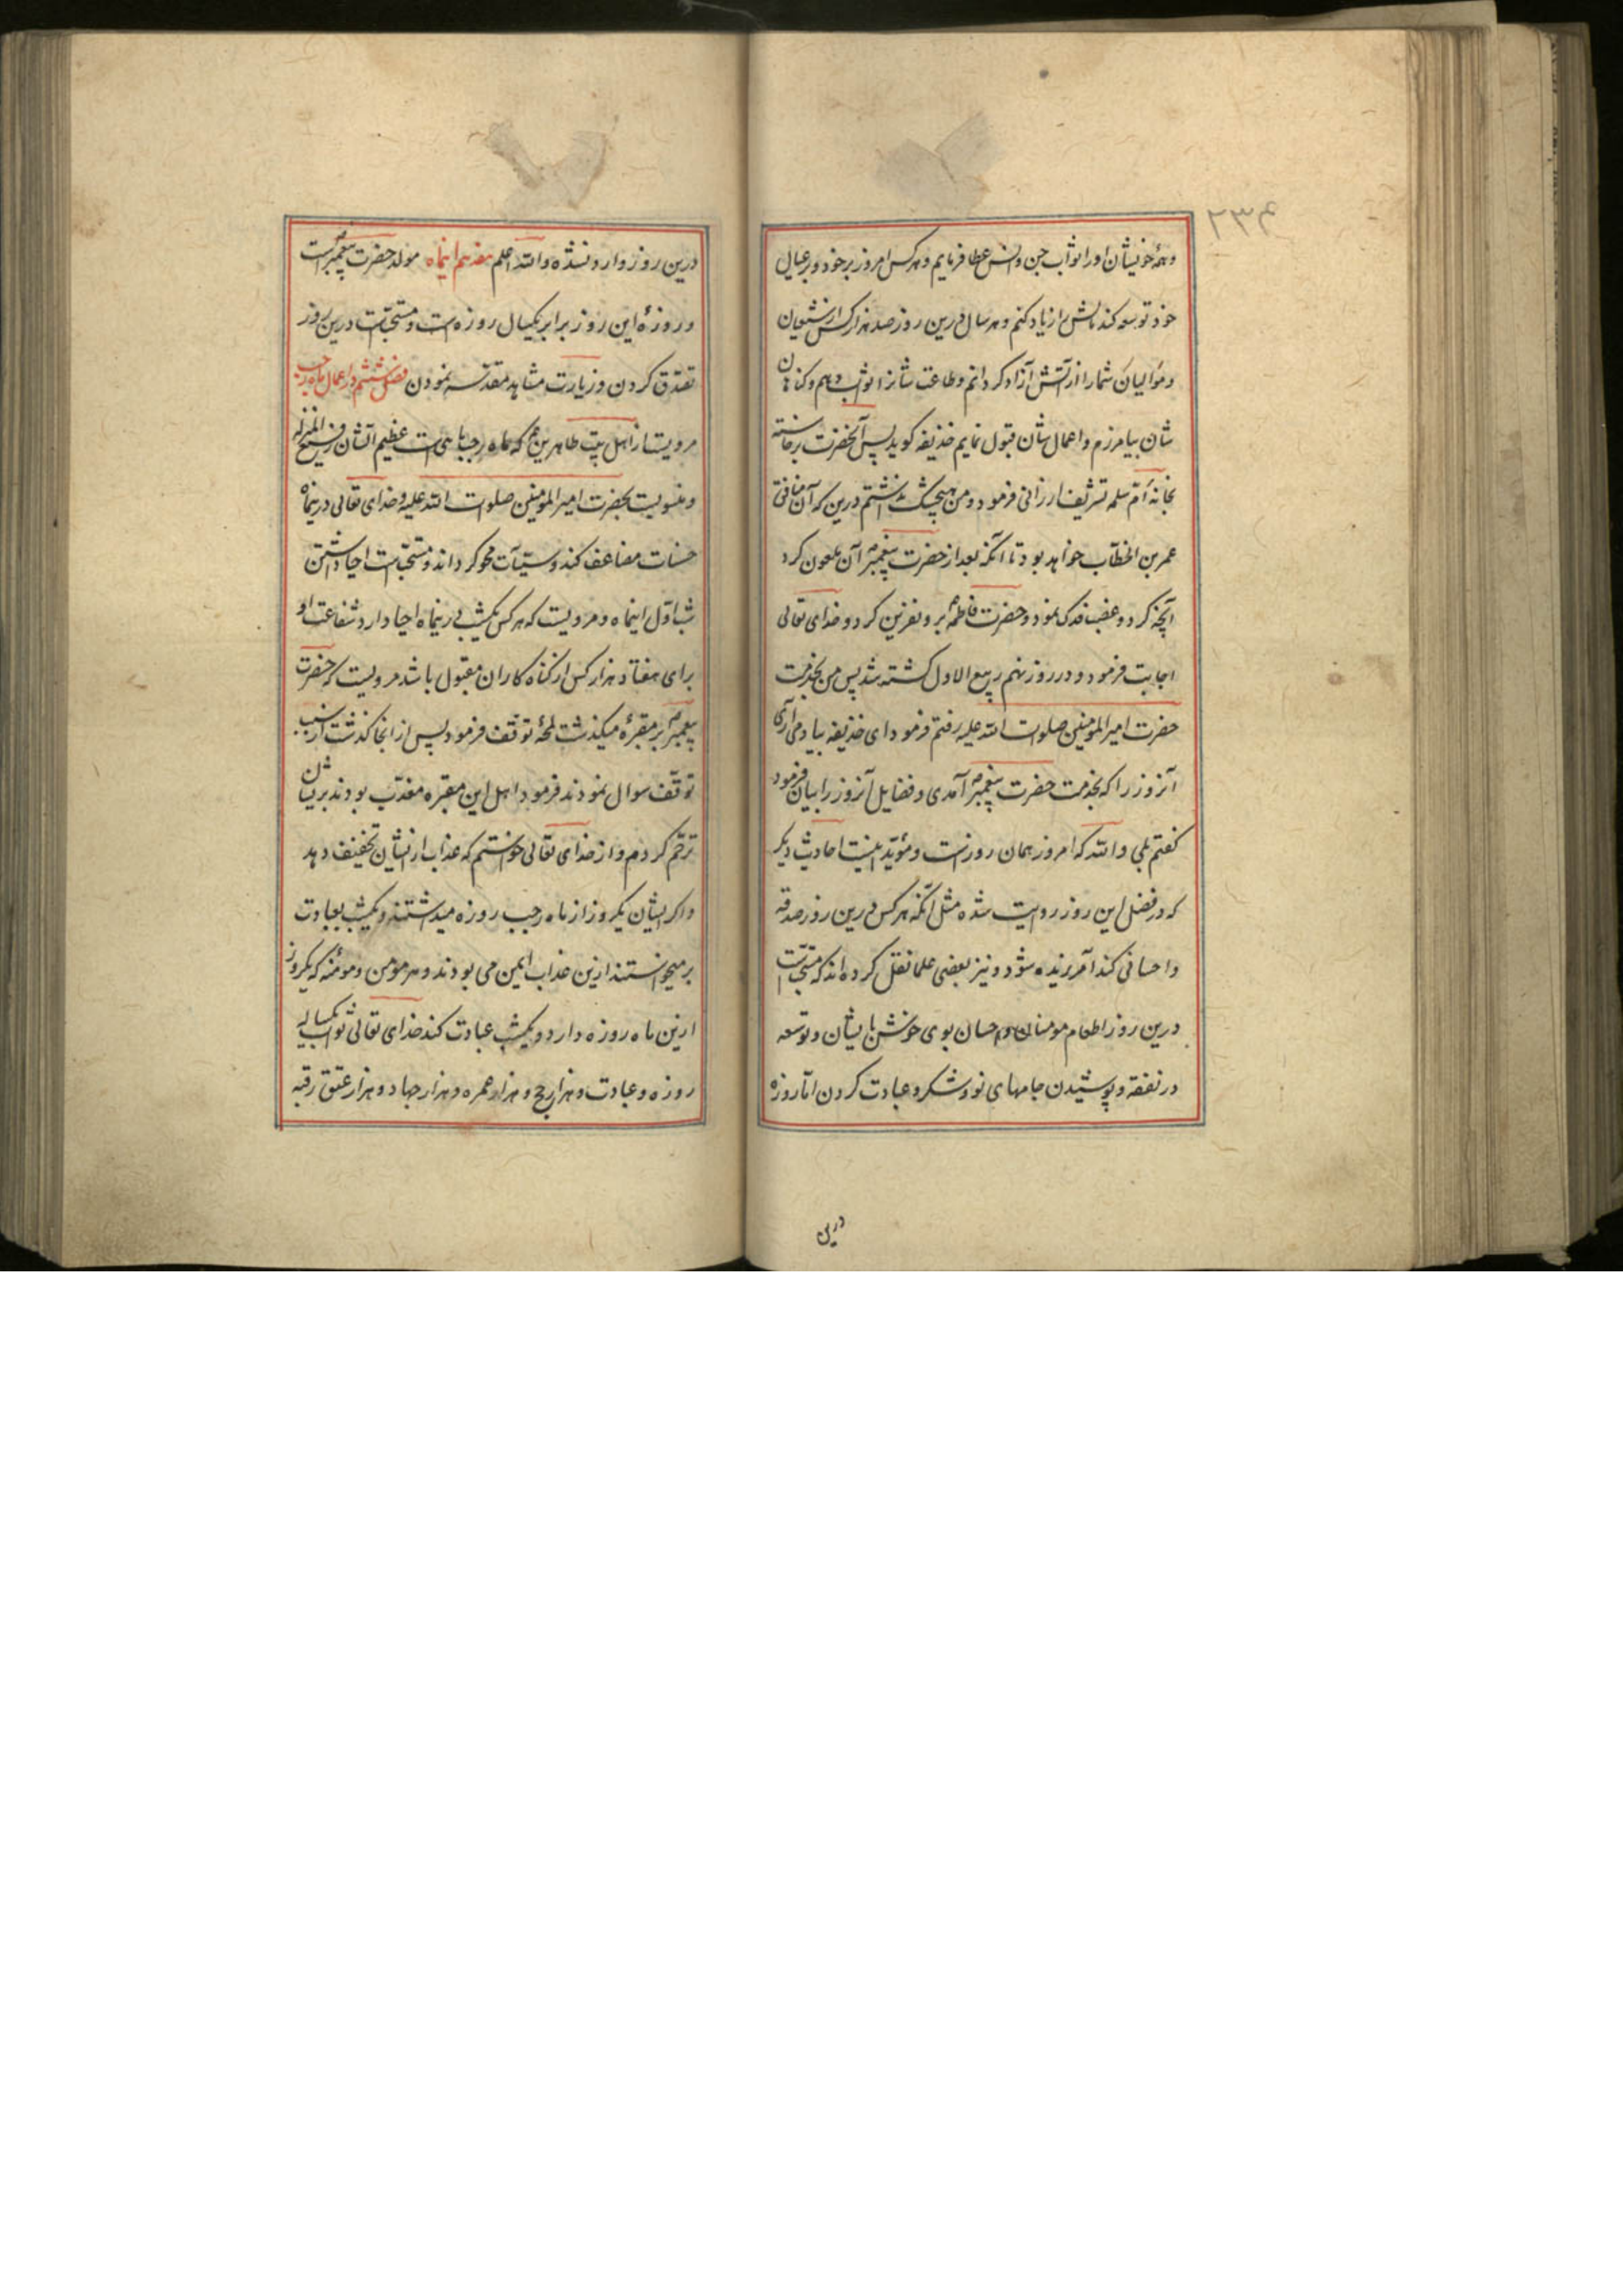 ۲۳۴
وهمه خویشان اورا ثواب جن وانس عطا فرمایم وهر کس امروز بر خود وبر عیال
خود توسعه کند مالش را زیاد کنم وهر سال درین روز صد هزار کس از شیعیان
وموالیان شما را از آتش آزاد کردانم وطاعت شانرا ثواب دهم وکناهان
شان بیامرزم واعمال شان قبول نمایم حذیفه کوید پس آنحضرت برخاسته
بخانه ام سلمه تشریف ارزانی فرمود ومن هیچ شک نداشتم درین که آن منافق
عمر بن الخطاب خواهد بود تا آنکه بعد از حضرت پیغمبر آن ملعون کرد
آنچه کرد وغصب فدک نمود وحضرت فاطمه برو نفرین کرد وخدای تعالی
اجابت فرمود ودر روز نهم ربیع الاول کشته شد پس من بخدمت
حضرت امیر المومنین صلوات الله علیه رفتم فرمود ای حذیفه بیاد می آری
آنروز را که بخدمت حضرت پیغمبر آمدی وفضایل آنروز را بیان فرمود
کفتم بلی والله که امروز همان روزست ومؤید اینست احادیث دیکر
که در فضل این روز روایت شده مثل آنکه هر کس درین روز صدقه
واحسانی کند آمرزیده شود ونیز بعضی علما نقل کرده اند که مستحبست
درین روز اطعام مومنان واحسان بوی خوش بایشان وتوسعه
در نفقه وپوشیدن جامهای نو وشکر وعبادت کردن اما روزه
درین
درین روز وارد نشده والله اعلم هفدهم اینماه مولد حضرت پیغمبرست
وروزۀ این روز برابر یکسال روزه است ومستحبست درین روز
تصدق کردن وزیارت مشاهد مقدسه نمودن فصل ششم در اعمال ماه رجب
مرویست از اهل بیت طاهرین که ماه رجب ماهی است عظیم الشان رفیع المنزله
ومنسوبست بحضرت امیر المومنین صلوات الله علیه وخدای تعالی درینماه
حسنات مضاعف کند وسیئات محو کرداند ومستحبست احیا داشتن
شب اول اینماه ومرویست که هر کس یکشب درینماه احیا دارد شفاعت او
برای هفتاد هزار کس از کناه کاران مقبول باشد مرویست که حضرت
پیغمبر بر مقبرۀ میکذشت لمحۀ توقف فرمود پس از انجا کذشت از سبب
توقف سوال نمودند فرمود اهل این مقبره معذب بودند بریشان
ترحم کردم واز خدای تعالی خواستم که عذاب ازیشان تخفیف دهد
واکر ایشان یکروز از ماه رجب روزه میداشتند ویکشب بعبادت
برمیخواستند ازین عذاب ایمن می بودند وهر مومن ومومنه که یکروز
ازین ماه روزه دارد ویکشب عبادت کند خدای تعالی ثواب یکساله
روزه وعبادت وهزار حج وهزار عمره وهزار جهاد وهزار عتق رقبه